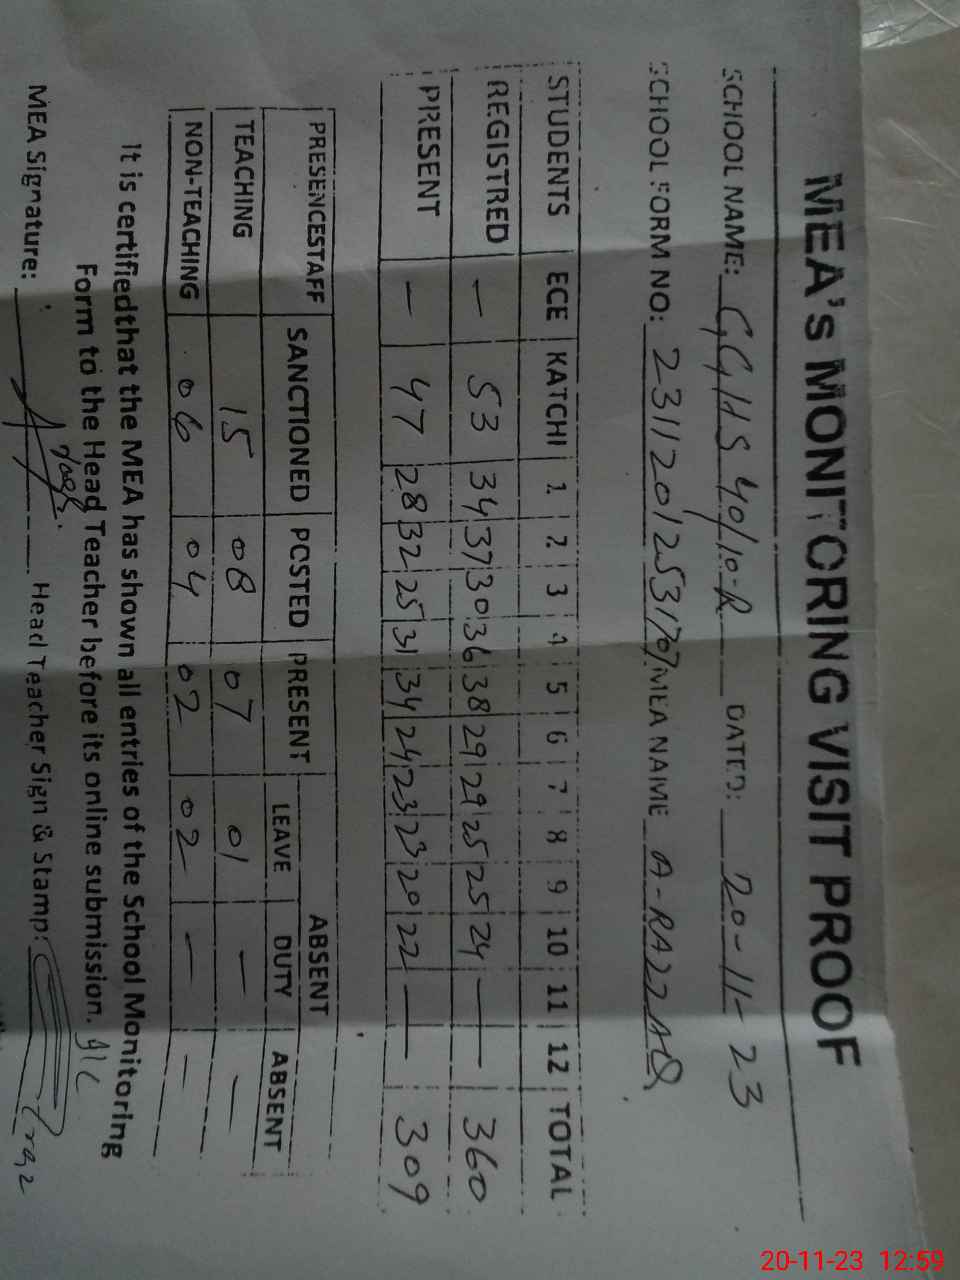 MEA's MONITORING VISIT PROOF
SCHOOL NAME: GGHS 40/10-R DATED: 20-11-23
SCHOOL FORM NO: 23112012531707 MEA NAME A-RAZZAQ
STUDENTS ECE KATCHI 1 2 3 4 5 6 7 8 9 10 11 12 TOTAL
REGISTRED — 53 34 37 30 36 38 29 29 25 25 24 — 360
PRESENT — 47 28 32 25 31 34 24 23 23 20 22 — 309
PRESENCESTAFF SANCTIONED POSTED PRESENT ABSENT
LEAVE DUTY ABSENT
TEACHING 15 08 07 01 — —
NON-TEACHING 06 04 02 02 — —
It is certifiedthat the MEA has shown all entries of the School Monitoring
Form to the Head Teacher before its online submission.
MEA Signature: Head Teacher Sign & Stamp:
20-11-23 12:59